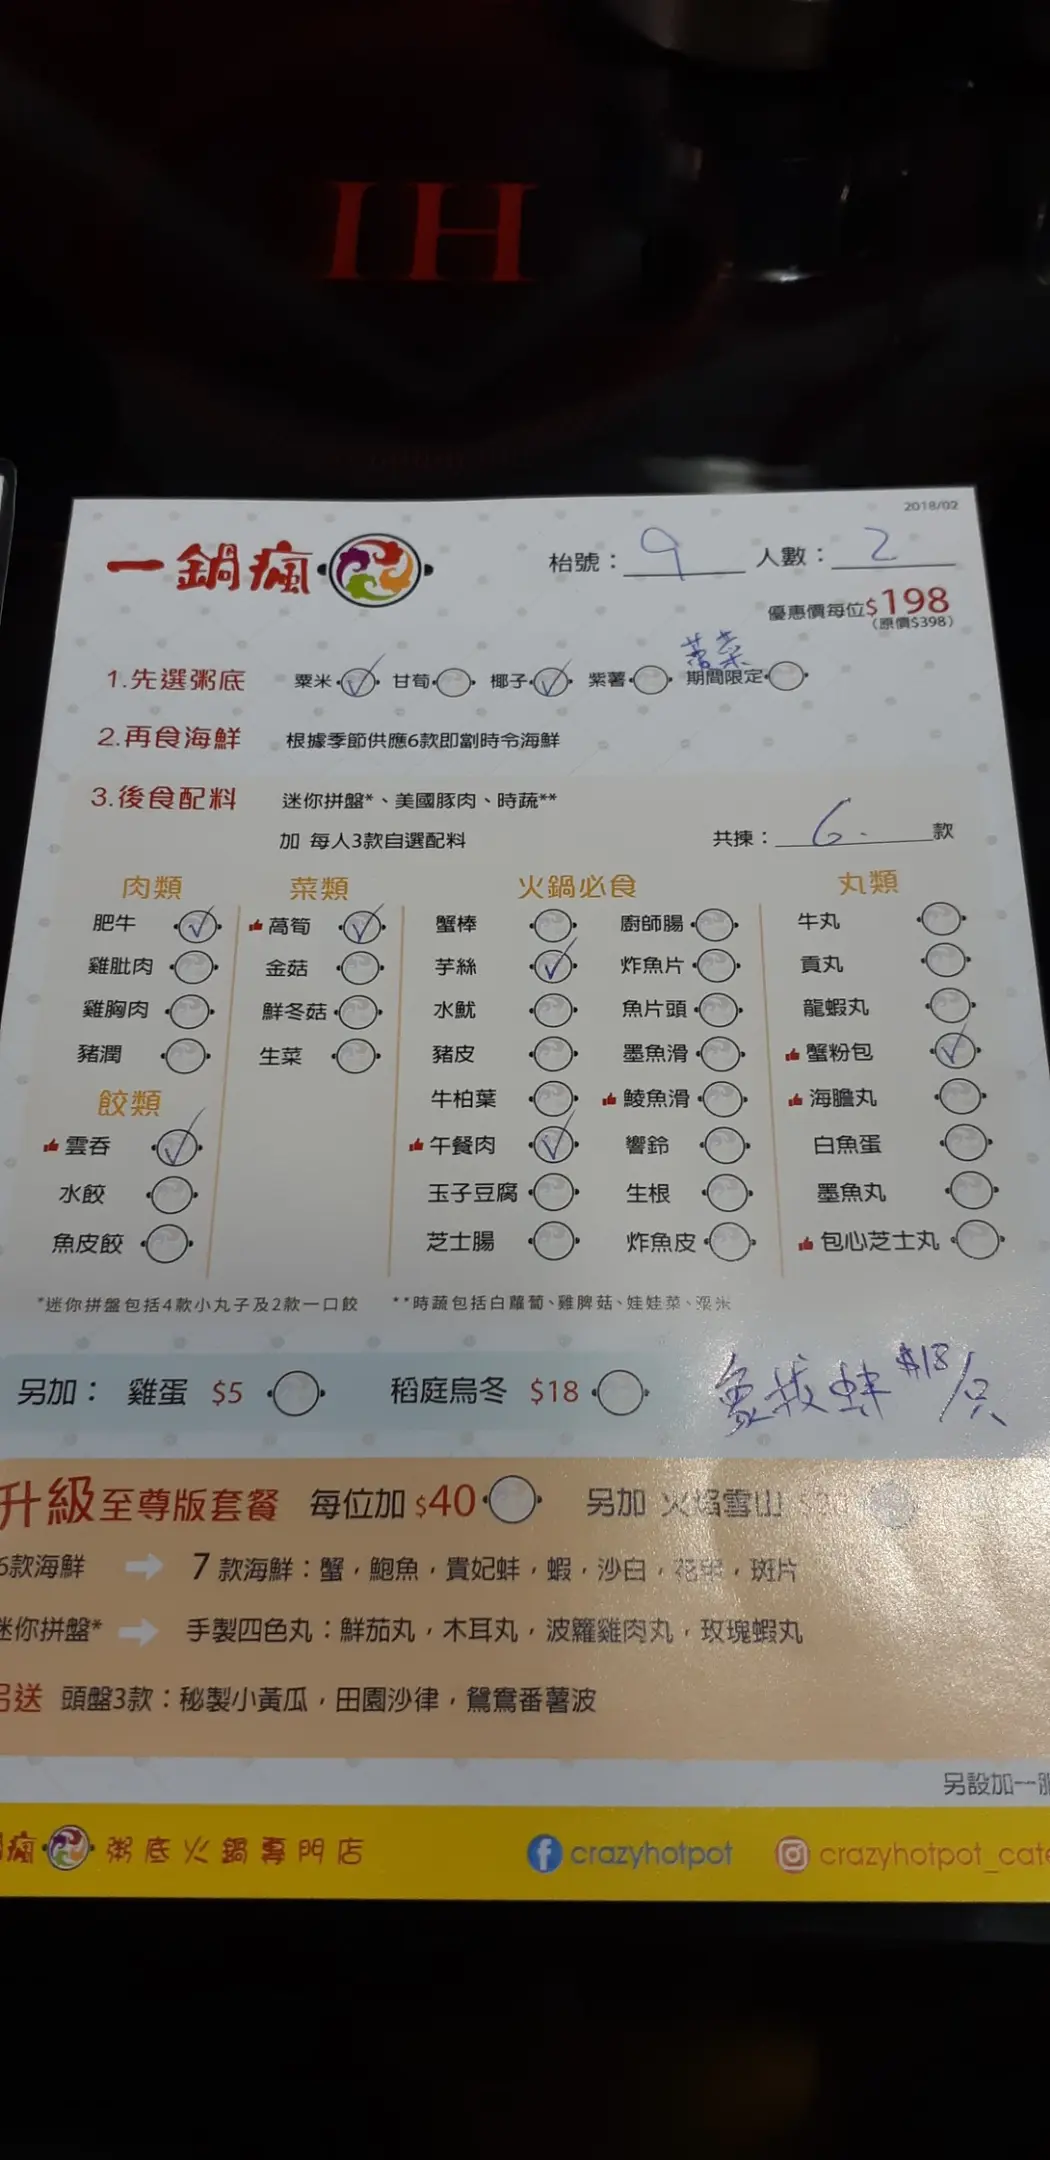 IH
2018/02
一鍋瘋
枱號：9 人數：2
優惠價每位$198
(原價$398)
1.先選粥底 粟米 甘荀 椰子 紫薯 期間限定
2.再食海鮮 根據季節供應6款即劏時令海鮮
3.後食配料 迷你拼盤*、美國豚肉、時蔬**
加 每人3款自選配料 共揀：6. 款
肉類 菜類 火鍋必食 丸類
肥牛 萵筍 蟹棒 廚師腸 牛丸
雞肶肉 金菇 芋絲 炸魚片 貢丸
雞胸肉 鮮冬菇 水魷 魚片頭 龍蝦丸
豬潤 生菜 豬皮 墨魚滑 蟹粉包
餃類 牛柏葉 鯪魚滑 海膽丸
雲吞 午餐肉 響鈴 白魚蛋
水餃 玉子豆腐 生根 墨魚丸
魚皮餃 芝士腸 炸魚皮 包心芝士丸
*迷你拼盤包括4款小丸子及2款一口餃 **時蔬包括白蘿蔔、雞脾菇、娃娃菜、粟米
另加： 雞蛋 $5 稻庭烏冬 $18 象拔蚌 $18/只
升級至尊版套餐 每位加$40 另加 火焰雪山
6款海鮮 7款海鮮：蟹，鮑魚，貴妃蚌，蝦，沙白，花甲，斑片
迷你拼盤* 手製四色丸：鮮茄丸，木耳丸，波籮雞肉丸，玫瑰蝦丸
另送 頭盤3款：秘製小黃瓜，田園沙律，鴛鴦番薯波
另設加一
瘋 粥底火鍋專門店 crazyhotpot crazyhotpot_cat